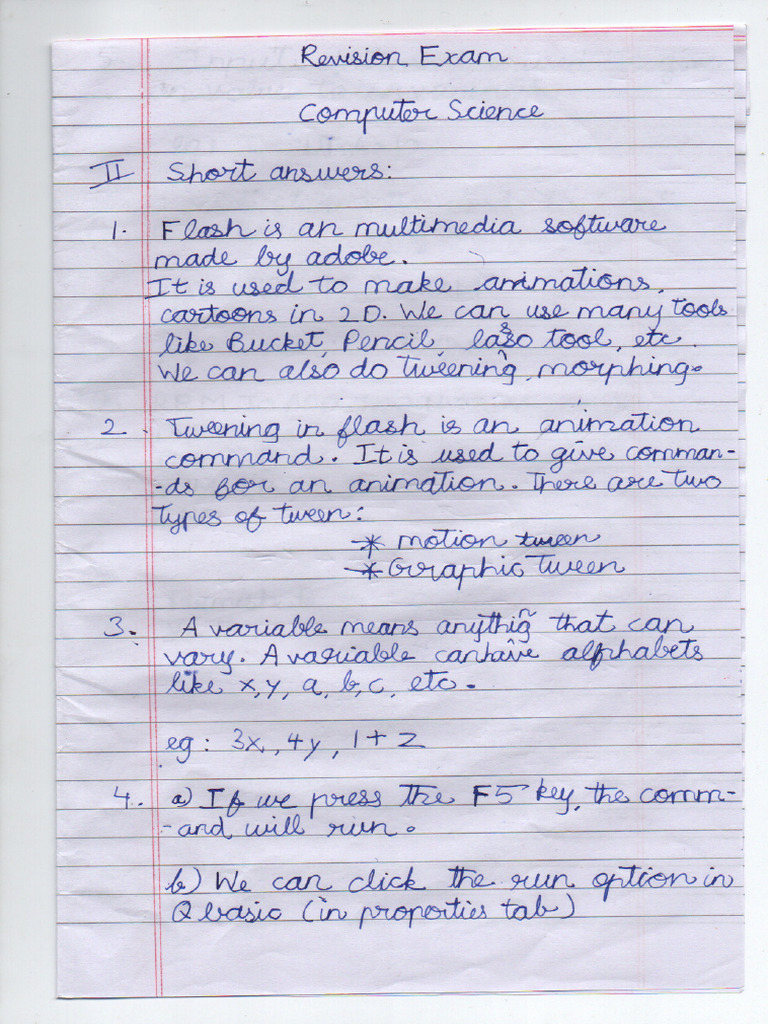 Revision Exam
Computer Science
II Short answers:
1. Flash is an multimedia software
made by adobe.
It is used to make animations,
cartoons in 2D. We can use many tools
like Bucket, Pencil, lasso tool, etc.
We can also do tweening, morphing.
2. Tweening in flash is an animation
command. It is used to give comman-
-ds for an animation. There are two
types of tween:
* Motion tween
* Graphic Tween
3. A variable means anything that can
vary. A variable can have alphabets
like x, y, a, b, c, etc.
eg: 3x, 4y, 1+2
4. a) If we press the F5 key, the comm-
-and will run.
b) We can click the run option in
Q basic (in properties tab)